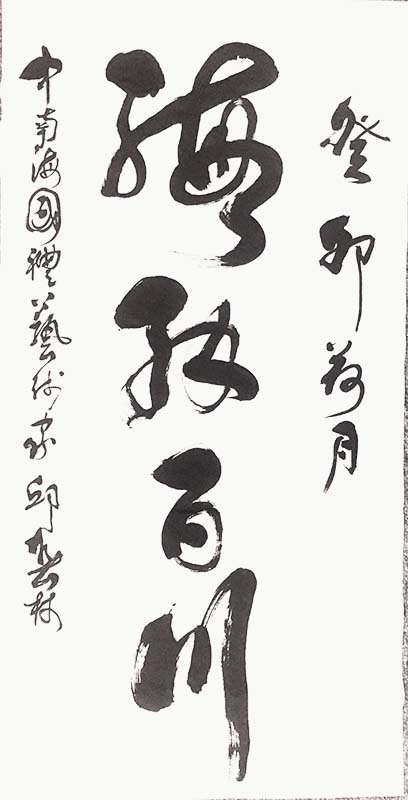 癸卯荷月
海纳百川
中南海國禮藝術家邱